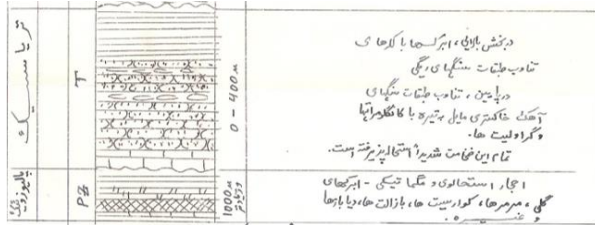 تریاسیک
T
0-400м
در بخش بالایی، ابرکسها با کلرهای
تناوب طبقات سنگهای ریگی
در پایین، تناوب طبقات سنگهای
آهک خاکستری مایل به تیره با کانگلومراتها
و گراولیت ها.
تمام این ضخامت شدیداً استحاله پذیرفته است.
پالیوزوئیک
PZ
1000м
احجار استحالوی و مگماتیکی - ابرکهای
گلی، مرمرها، کوارسیت ها، بازالت ها، دیابازها
و غیره.